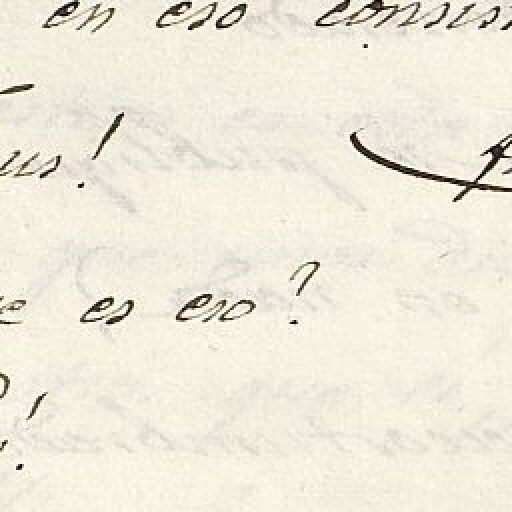 en eso consis
us!
e es eso?
!